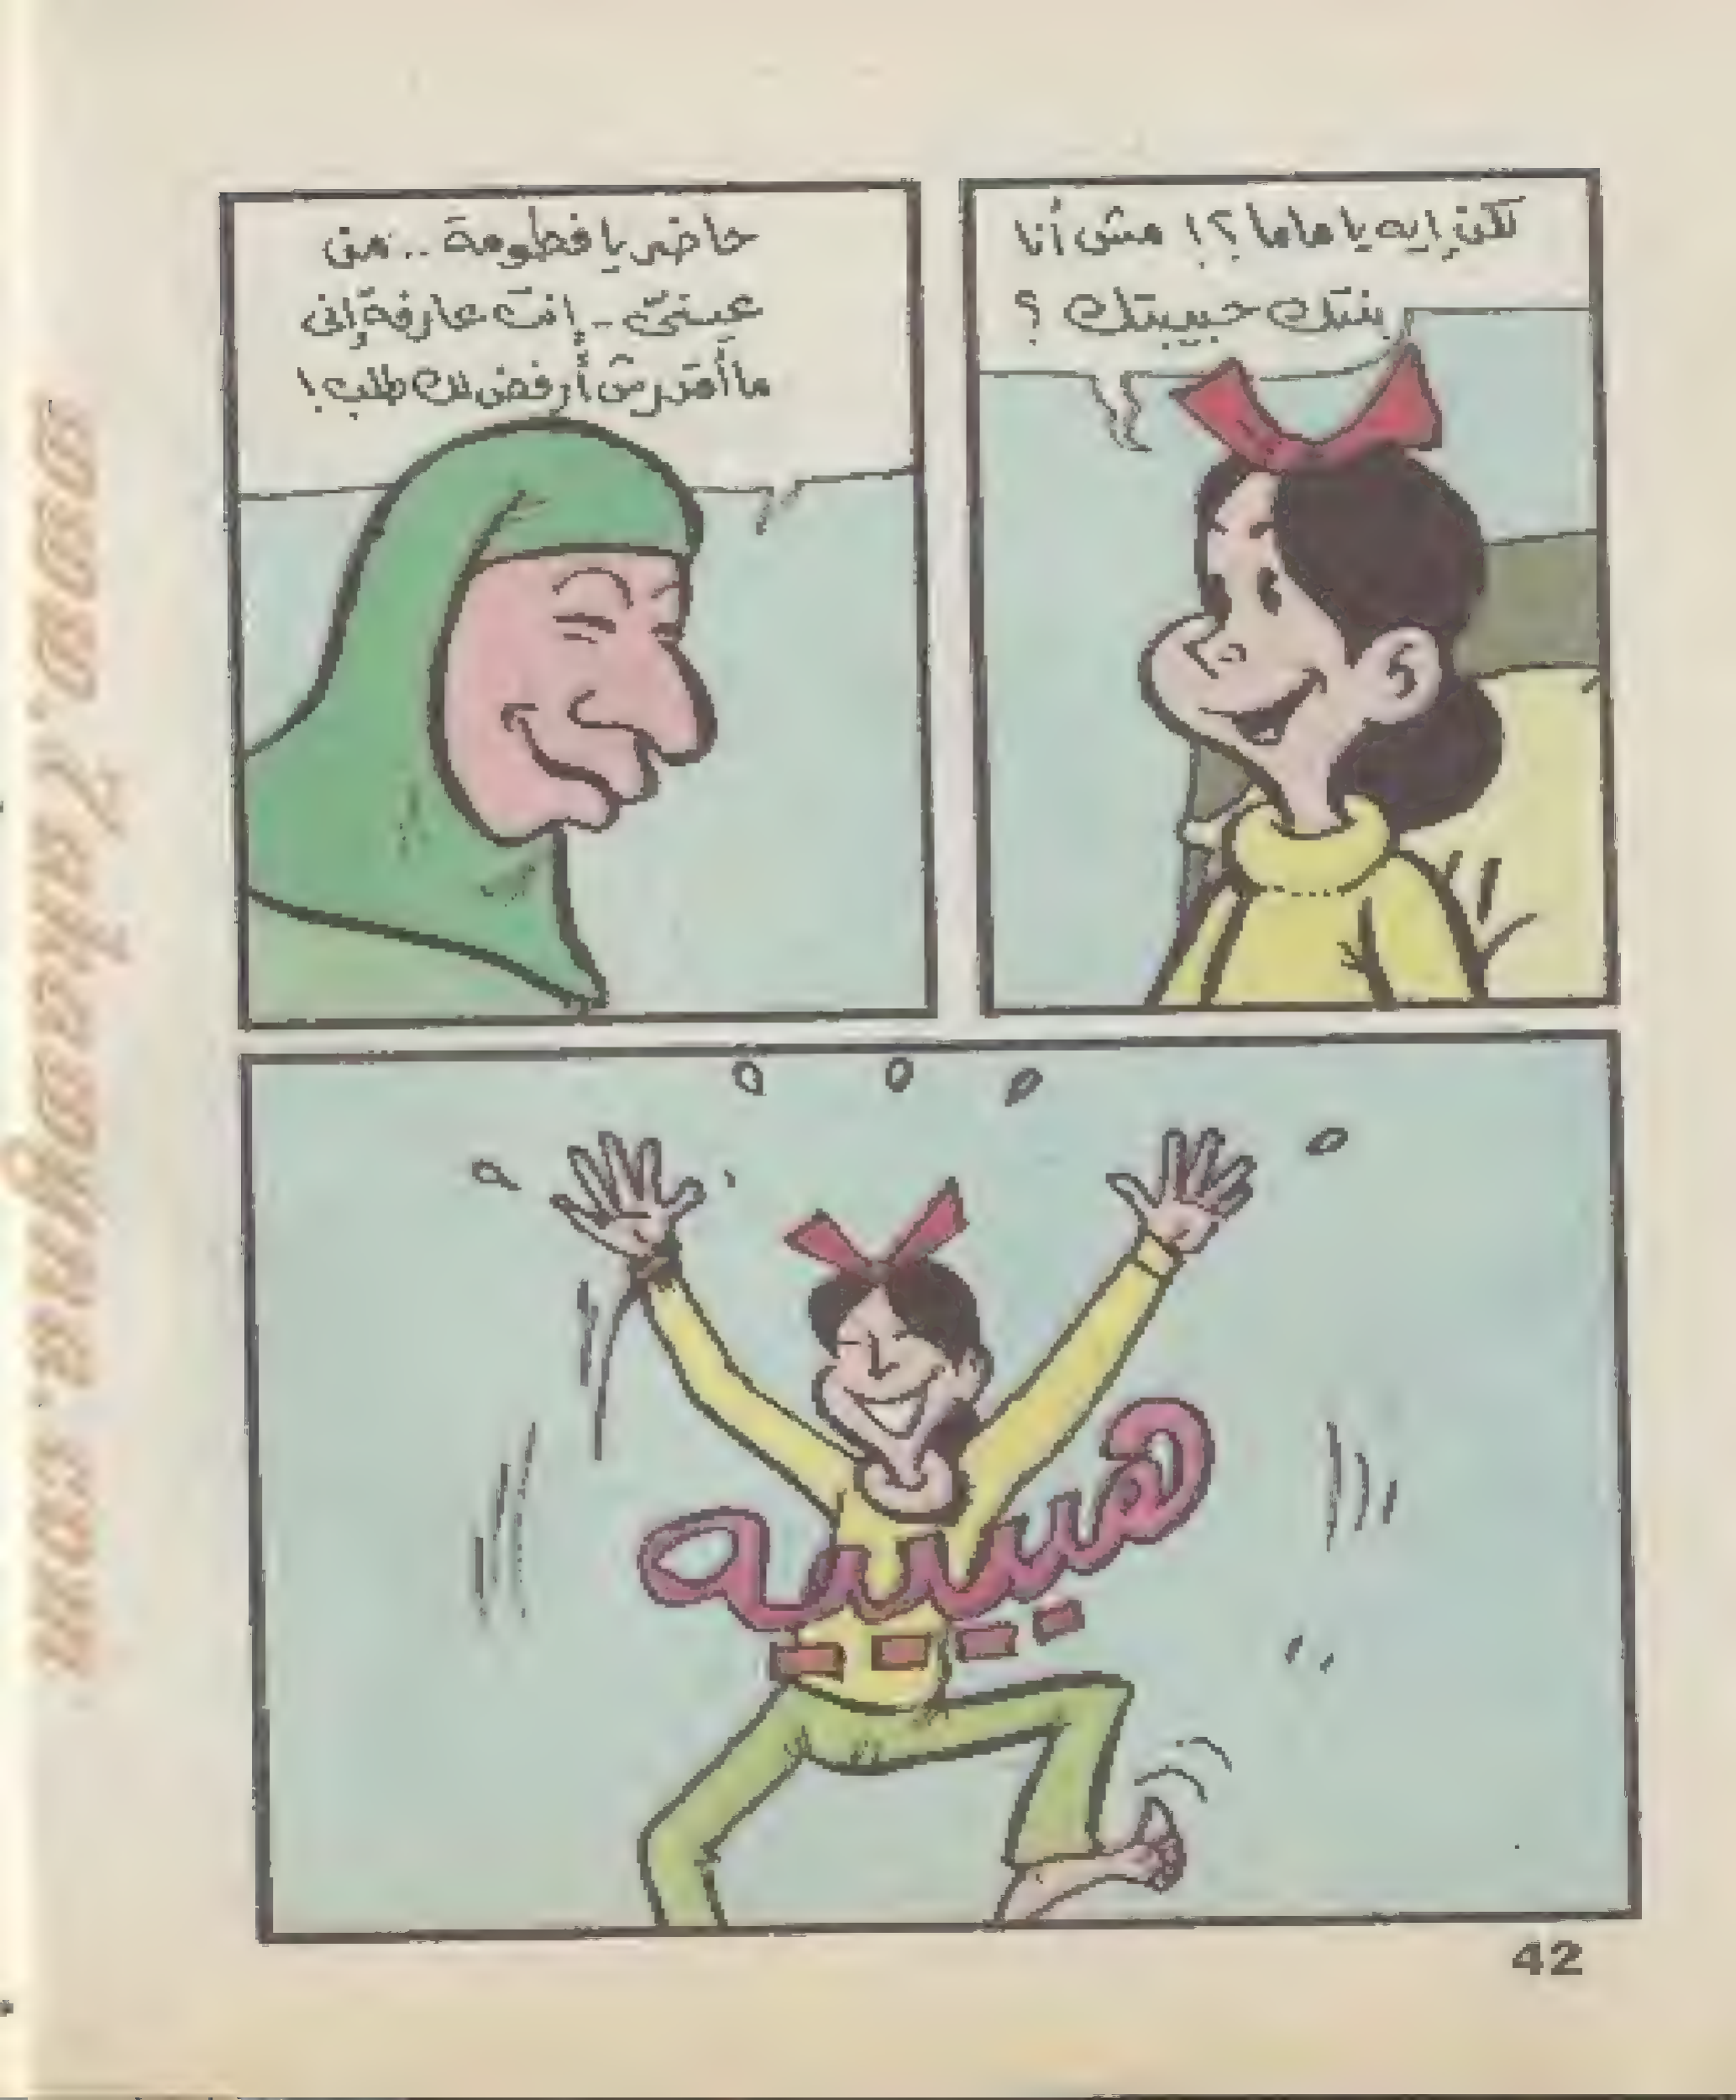 لكن إيه يا ماما؟! مش أنا
بنتك حبيبتك ؟
حاضر يا فطومة .. من
عينىّ .. إنت عارفة إنى
ما أقدرش أرفض لك طلب!
هيييييه
42